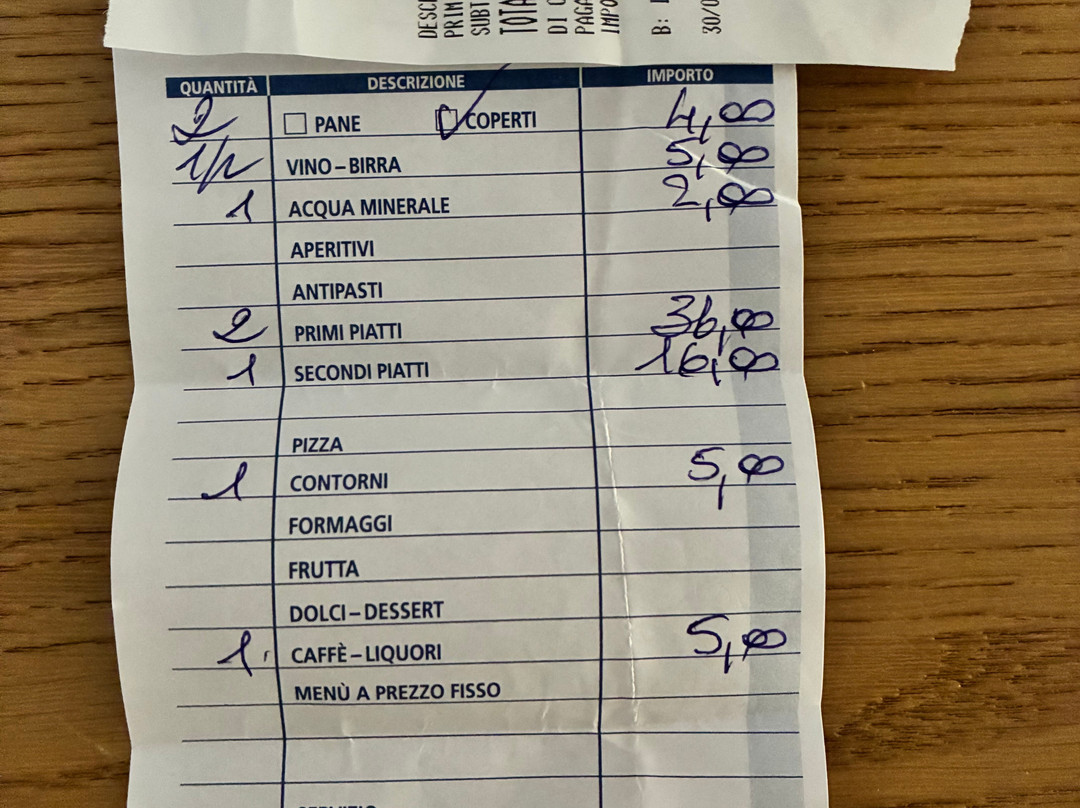 DESC
PRIM
SUBT
TOTA
DI C
PAGA
IMPO
B:
30/0
QUANTITÀ DESCRIZIONE IMPORTO
2 PANE COPERTI 4,00
1/2 VINO – BIRRA 5,00
1 ACQUA MINERALE 2,00
APERITIVI
ANTIPASTI
2 PRIMI PIATTI 36,00
1 SECONDI PIATTI 16,00
PIZZA
1 CONTORNI 5,00
FORMAGGI
FRUTTA
DOLCI – DESSERT
1 CAFFÈ – LIQUORI 5,00
MENÙ A PREZZO FISSO